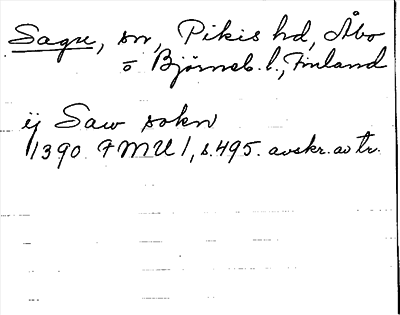 Sagu, sn, Pikis hd, Åbo
o Björneb. l., Finland
ij Saw sokn
1390 FMU 1, s. 495. avskr. av tr.